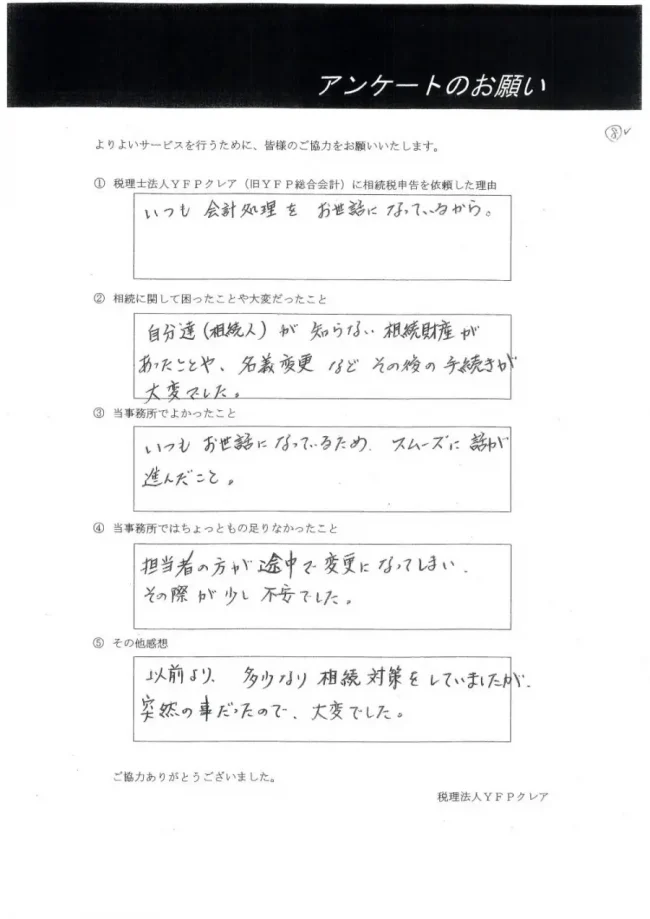 アンケートのお願い
⑧✓
よりよいサービスを行うために、皆様のご協力をお願いいたします。
① 税理士法人YFPクレア（旧YFP総合会計）に相続税申告を依頼した理由
いつも 会計処理を お世話になっているから。
② 相続に関して困ったことや大変だったこと
自分達（相続人）が 知らない 相続財産が
あったことや、名義変更 など その後の 手続きが
大変でした。
③ 当事務所でよかったこと
いつも お世話になっているため、スムーズに 話が
進んだこと。
④ 当事務所ではちょっともの足りなかったこと
担当者の方が 途中で 変更になってしまい、
その際が少し 不安でした。
⑤ その他感想
以前より、多少なり 相続対策をしていましたが、
突然の事だったので、大変でした。
ご協力ありがとうございました。
税理法人YFPクレア